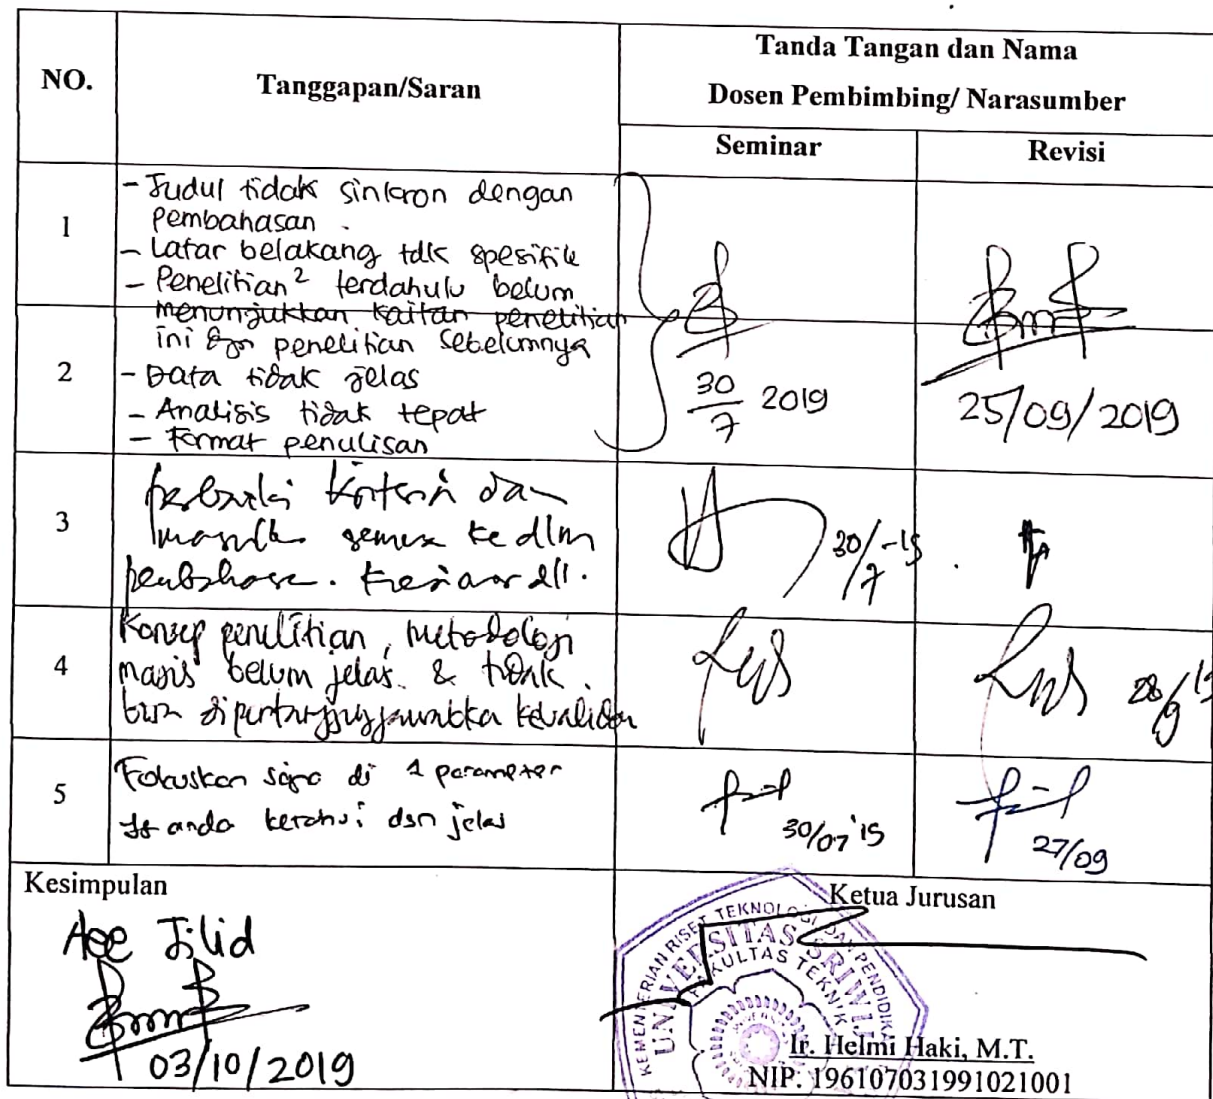 NO.
Tanggapan/Saran
Tanda Tangan dan Nama
Dosen Pembimbing/ Narasumber
Seminar
Revisi
1
- Judul tidak sinkron dengan
pembahasan.
- Latar belakang tdk spesifik
- Penelitian² terdahulu belum
menunjukkan kaitan penelitian
ini dgn penelitian sebelumnya
2
- Data tidak jelas
- Analisis tidak tepat
- Format penulisan
30/7 2019
25/09/2019
3
perbaiki kriteria dan
semua ke dlm
dll.
30/7-19
4
Konsep penelitian, metodologi
masis belum jelas. & tidak
28/9 19
5
Fokuskan di 1 parameter
anda jelas
30/07 '19
27/09
Kesimpulan
Acc Jilid
03/10/2019
Ketua Jurusan
KEMENTERIAN RISET TEKNOLOGI DAN PENDIDIKA
UNIVERSITAS SRIWIJ
FAKULTAS TEKNIK
Ir. Helmi Haki, M.T.
NIP. 196107031991021001